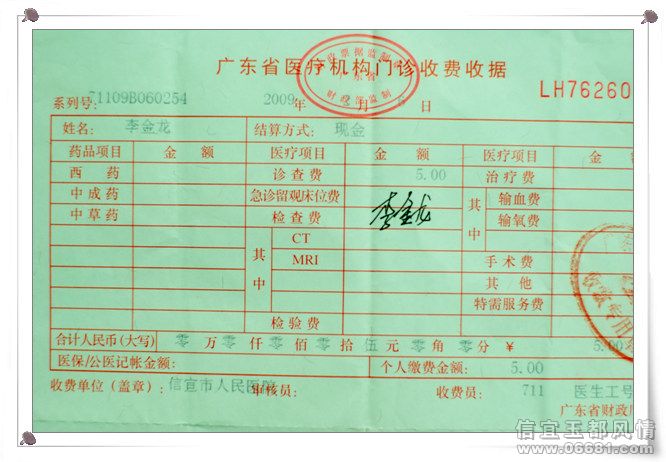 广东省医疗机构门诊收费收据
LH76260
系列号: 71109B060254 2009年 月 6 日
姓名: 李金龙 结算方式: 现金
药品项目 金 额 医疗项目 金 额 医疗项目 金
西 药 诊查费 5.00 治疗费
中成药 急诊留观床位费 其中 输血费
中草药 检查费 李金龙 输氧费
其中 CT
MRI 手术费
其 他
特需服务费
检验费
合计人民币(大写) 零 万 零 仟 零 佰 零 拾 伍 元 零 角 零 分 ¥ 5.00
医保/公医记帐金额: 个人缴费金额: 5.00
收费单位(盖章): 信宜市人民医院 审核员: 收费员: 711 医生工号
广东省财政厅
信宜玉都风情
www.06681.com